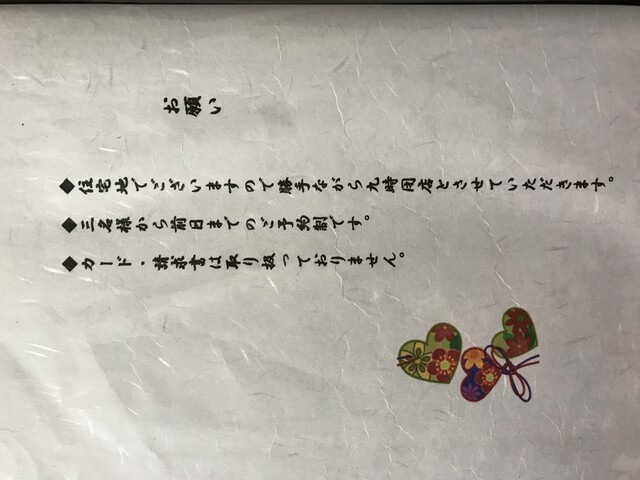 お願い
◆住宅地でございますので勝手ながら九時閉店とさせていただきます。
◆三名様から前日までのご予約制です。
◆カード・請求書は取り扱っておりません。